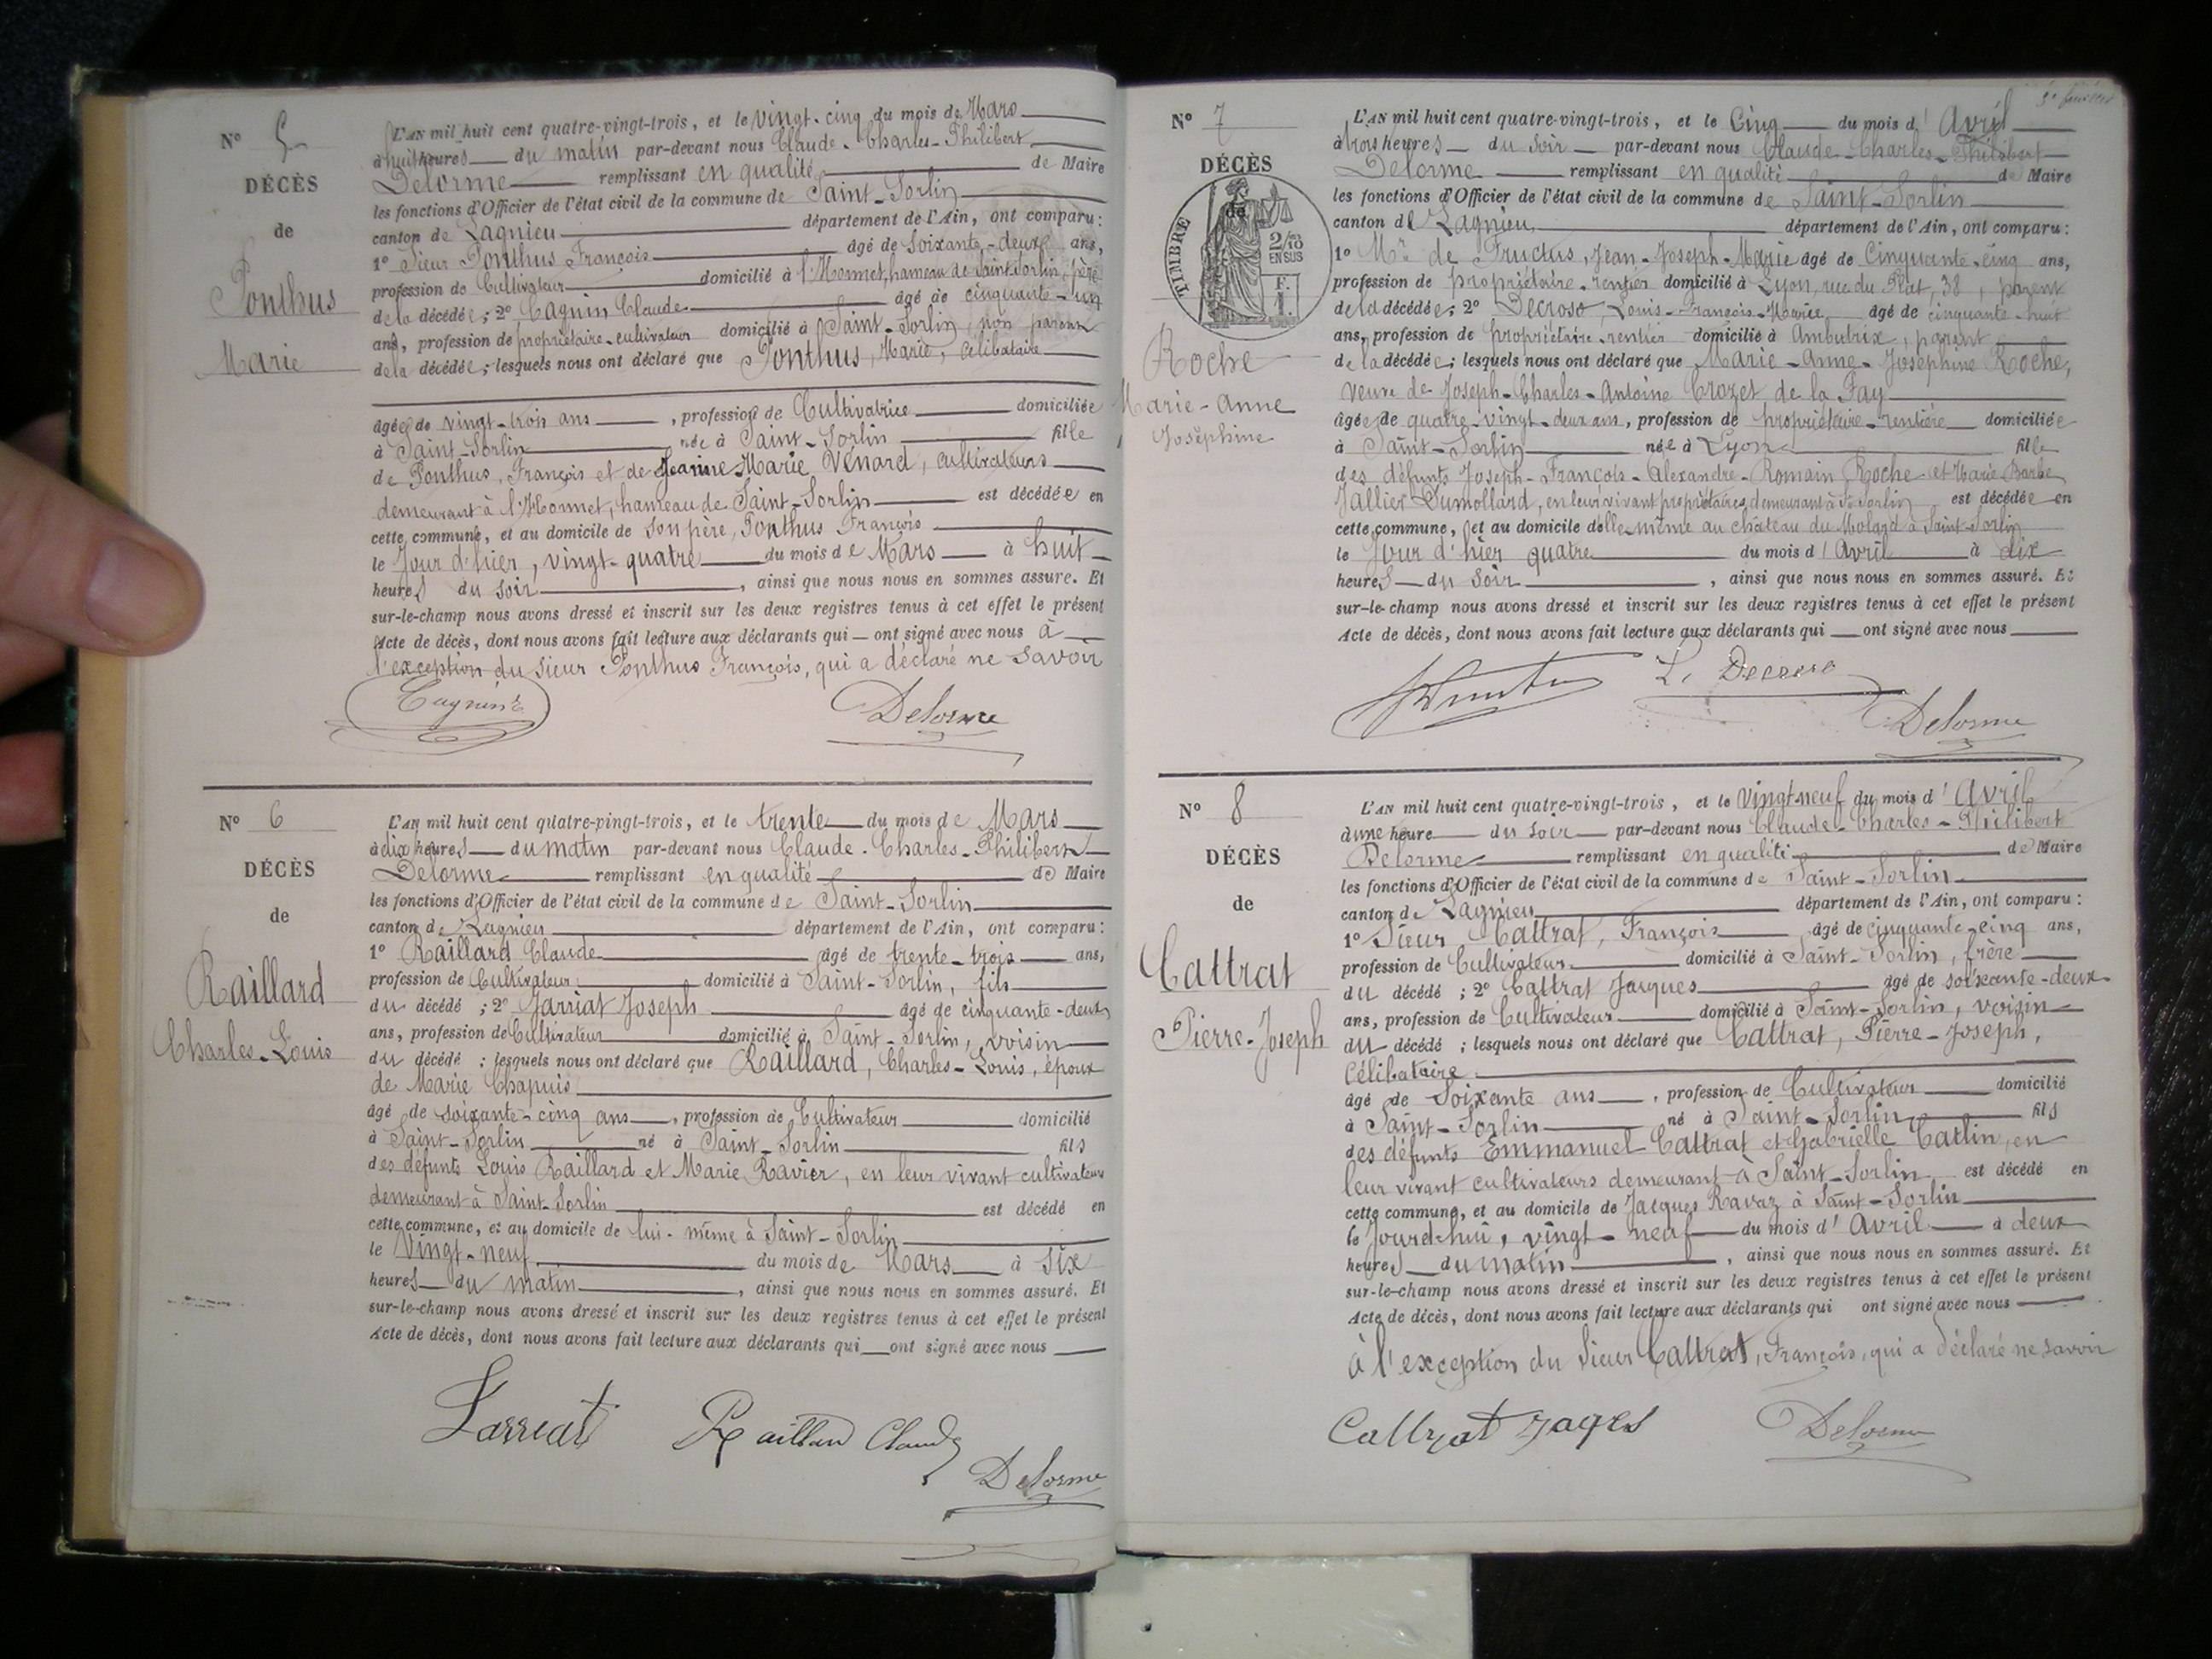 N° 5
DÉCÈS
de
Ponthus
Marie
L'AN mil huit cent quatre-vingt-trois, et le Vingt-cinq du mois de Mars
à huit heures du matin par-devant nous Claude-Charles-Philibert
Delorme remplissant en qualité de Maire
les fonctions d'Officier de l'état civil de la commune de Saint-Sorlin
canton de Lagnieu département de l'Ain, ont comparu :
1° Sieur Ponthus François âgé de Soixante-deux ans,
profession de Cultivateur domicilié à l'Hormet, hameau de Saint-Sorlin, père
de la décédée ; 2° Cagnin Claude âgé de cinquante-un
ans, profession de propriétaire-cultivateur domicilié à Saint-Sorlin, non parent
de la décédée ; lesquels nous ont déclaré que Ponthus, Marie, célibataire
âgée de vingt-trois ans, profession de Cultivatrice domiciliée
à Saint-Sorlin née à Saint-Sorlin fille
de Ponthus, François et de Jeanne Marie Venard, cultivateurs
demeurant à l'Hormet, hameau de Saint-Sorlin est décédée en
cette commune, et au domicile de son père, Ponthus François
le Jour d'hier, vingt-quatre du mois de Mars à huit
heures du soir, ainsi que nous nous en sommes assuré. Et
sur-le-champ nous avons dressé et inscrit sur les deux registres tenus à cet effet le présent
Acte de décès, dont nous avons fait lecture aux déclarants qui ont signé avec nous à
l'exception du sieur Ponthus François, qui a déclaré ne savoir
Cagnin
Delorme
N° 6
DÉCÈS
de
Raillard
Charles-Louis
L'AN mil huit cent quatre-vingt-trois, et le trente du mois de Mars
à dix heures du matin par-devant nous Claude-Charles-Philibert
Delorme remplissant en qualité de Maire
les fonctions d'Officier de l'état civil de la commune de Saint-Sorlin
canton de Lagnieu département de l'Ain, ont comparu :
1° Raillard Claude âgé de trente-trois ans,
profession de Cultivateur domicilié à Saint-Sorlin, fils
du décédé ; 2° Jarriat Joseph âgé de cinquante-deux
ans, profession de Cultivateur domicilié à Saint-Sorlin, voisin
du décédé ; lesquels nous ont déclaré que Raillard, Charles-Louis, époux
de Marie Chapuis
âgé de soixante-cinq ans, profession de Cultivateur domicilié
à Saint-Sorlin né à Saint-Sorlin fils
des défunts Louis Raillard et Marie Ravier, en leur vivant cultivateurs
demeurant à Saint-Sorlin est décédé en
cette commune, et au domicile de lui-même à Saint-Sorlin
le Vingt-neuf du mois de Mars à six
heures du matin, ainsi que nous nous en sommes assuré. Et
sur-le-champ nous avons dressé et inscrit sur les deux registres tenus à cet effet le présent
Acte de décès, dont nous avons fait lecture aux déclarants qui ont signé avec nous
Jarriat Raillard Claude
Delorme
N° 7
DÉCÈS
de
TIMBRE
2/10
EN SUS
F.
1.
Roche
Marie-Anne
Joséphine
L'AN mil huit cent quatre-vingt-trois, et le Cinq du mois d'Avril
à trois heures du soir par-devant nous Claude-Charles-Philibert
Delorme remplissant en qualité de Maire
les fonctions d'Officier de l'état civil de la commune de Saint-Sorlin
canton de Lagnieu département de l'Ain, ont comparu :
1° Mr de Fructus, Jean-Joseph-Marie âgé de Cinquante-cinq ans,
profession de propriétaire-rentier domicilié à Lyon, rue du Plat, 38, parent
de la décédée ; 2° Decroso, Louis-François-Marie âgé de cinquante-huit
ans, profession de propriétaire-rentier domicilié à Ambutrix, parent
de la décédée ; lesquels nous ont déclaré que Marie-Anne-Joséphine Roche,
veuve de Joseph-Charles-Antoine Crozet de la Fay
âgée de quatre-vingt-deux ans, profession de propriétaire-rentière domiciliée
à Saint-Sorlin née à Lyon fille
des défunts Joseph-François-Alexandre-Romain Roche et Marie Barbe
Jallier Dumollard, en leur vivant propriétaires, demeurant à St-Sorlin est décédée en
cette commune, et au domicile d'elle-même au château du Molard à Saint-Sorlin
le Jour d'hier quatre du mois d'Avril à dix
heures du soir, ainsi que nous nous en sommes assuré. Et
sur-le-champ nous avons dressé et inscrit sur les deux registres tenus à cet effet le présent
Acte de décès, dont nous avons fait lecture aux déclarants qui ont signé avec nous
L. Decroso
Delorme
N° 8
DÉCÈS
de
Cattrat
Pierre-Joseph
L'AN mil huit cent quatre-vingt-trois, et le Vingt-neuf du mois d'Avril
à une heure du soir par-devant nous Claude-Charles-Philibert
Delorme remplissant en qualité de Maire
les fonctions d'Officier de l'état civil de la commune de Saint-Sorlin
canton de Lagnieu département de l'Ain, ont comparu :
1° Sieur Cattrat, François âgé de cinquante-cinq ans,
profession de Cultivateur domicilié à Saint-Sorlin, frère
du décédé ; 2° Cattrat Jacques âgé de soixante-deux
ans, profession de Cultivateur domicilié à Saint-Sorlin, voisin
du décédé ; lesquels nous ont déclaré que Cattrat, Pierre-Joseph,
Célibataire
âgé de Soixante ans, profession de Cultivateur domicilié
à Saint-Sorlin né à Saint-Sorlin fils
des défunts Emmanuel Cattrat et Gabrielle Carlin, en
leur vivant cultivateurs demeurant à Saint-Sorlin est décédé en
cette commune, et au domicile de Jacques Ravaz à Saint-Sorlin
le Jourd'hui, vingt-neuf du mois d'Avril à deux
heures du matin, ainsi que nous nous en sommes assuré. Et
sur-le-champ nous avons dressé et inscrit sur les deux registres tenus à cet effet le présent
Acte de décès, dont nous avons fait lecture aux déclarants qui ont signé avec nous
à l'exception du Sieur Cattrat, François, qui a déclaré ne savoir
Cattrat Jaques
Delorme